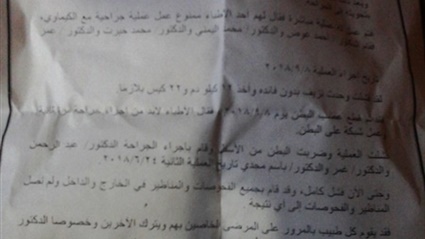 فتم عمل عملية مباشرة فقال لهم احد الأطباء ممنوع عمل عملية جراحية مع الكيماوي،
فقام الدكتور/ احمد عوض والدكتور/ محمد اليمني والدكتور/ محمد خيرت والدكتور/ عمر
تاريخ اجراء العملية ٢٠١٨/٩/٨
وحدث نزيف بدون فائده واخذ ١٢ كيلو دم و٢٢ كيس بلازما.
قطع عصب البطن يوم ٢٠١٨/٩/٨ فقال الأطباء لابد من اجراء جراحه
عمل شبكة على البطن.
العملية وضربت البطن من الأسفل وقام باجراء الجراحة الدكتور/ عبد الرحمن
والدكتور/ عمر والدكتور/ باسم مجدي تاريخ العملية الثانية ٢٠١٨/٦/٢٤
وحتى الآن فشل كامل، وقد قام بجميع الفحوصات والمناظير في الخارج والداخل ولم تصل
المناظير والفحوصات إلى أي نتيجة
فقد يقوم كل طبيب بالمرور على المرضى الخاصين بهم ويترك الآخرين وخصوصا الدكتور